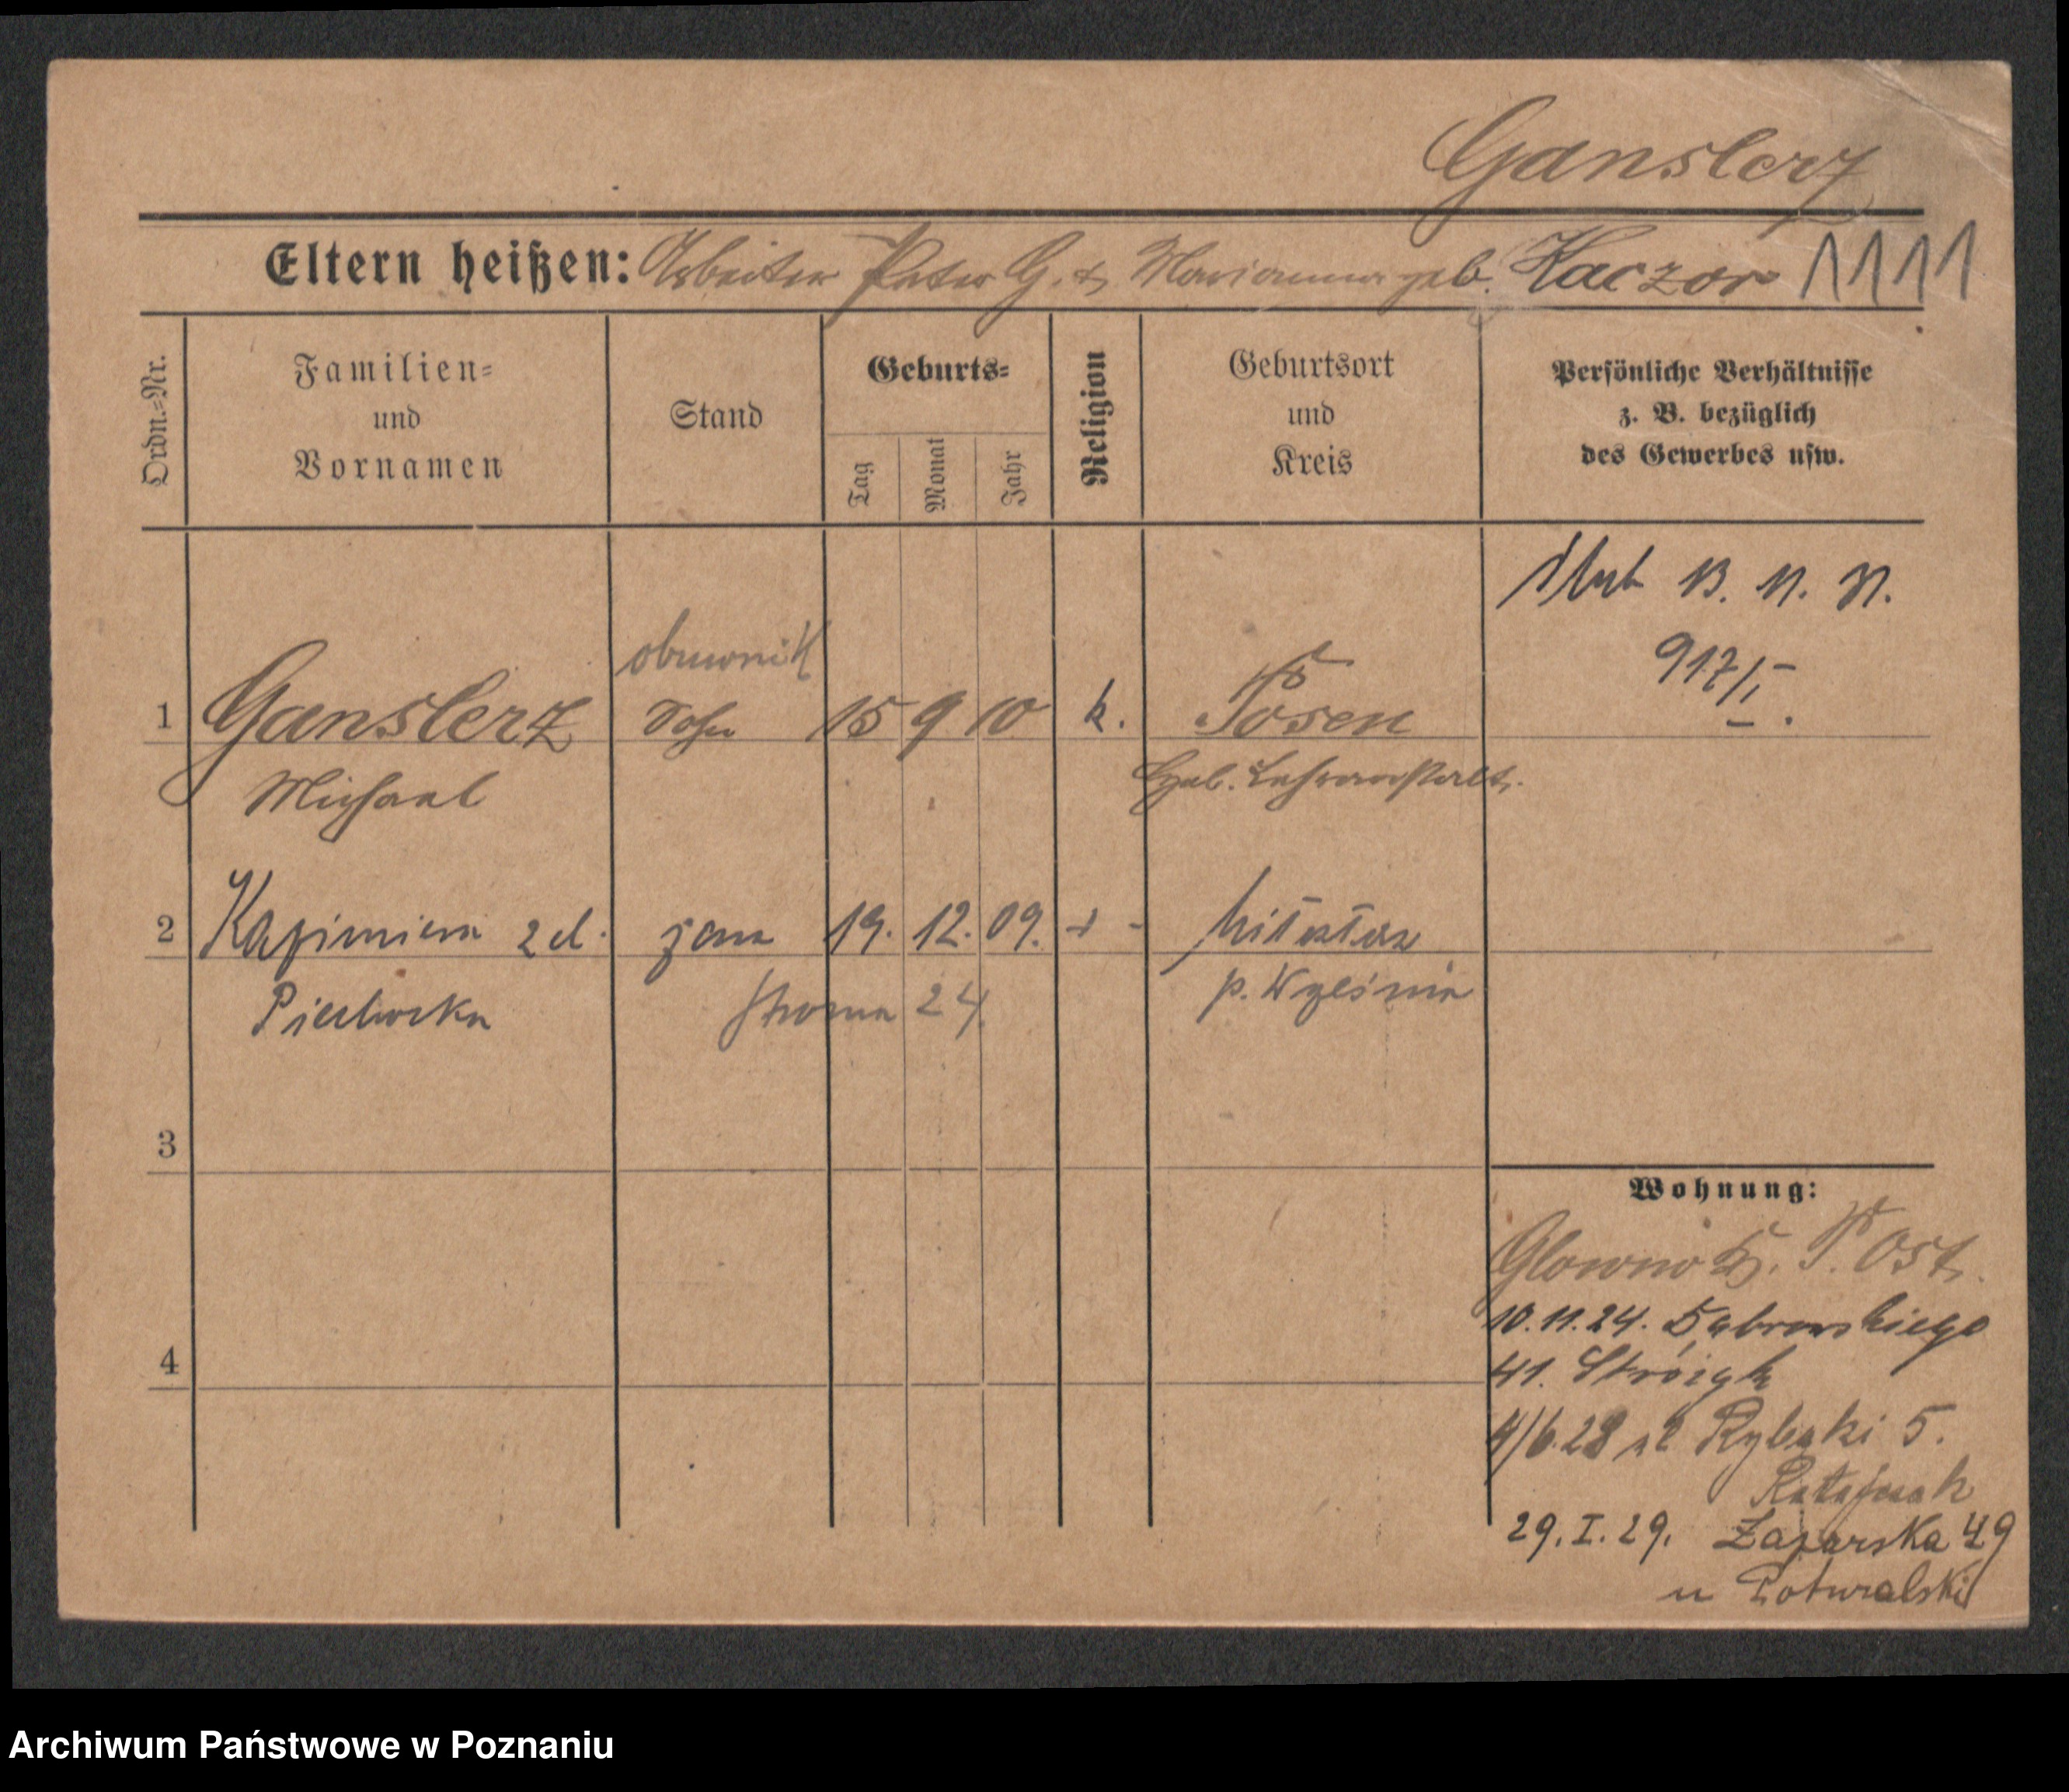 Ganslerz
Eltern heißen: Arbeiter Peter G. & Marianna geb. Kaczor 1111
Ordn.=Nr.
Familien=
und
Vornamen
Stand
Geburts=
Tag
Monat
Jahr
Religion
Geburtsort
und
Kreis
Persönliche Verhältnisse
z. B. bezüglich
des Gewerbes usw.
ślub 13. 11. 31.
917/I.
obuwnik
1 Ganslerz Sohn 15 9 10 k. Posen
Michael
2 Kazimiera z d. żona 19. 12. 09.
p. Września
Stroma 24
3
Wohnung:
Glowno Kr. P. Ost.
10.11.24. Dąbrowskiego
41. Stróżyk
4
4/6.28 Rybaki 5.
Ratajczak
29.I.29. Zagórska 49
u Poturalski
Archiwum Państwowe w Poznaniu